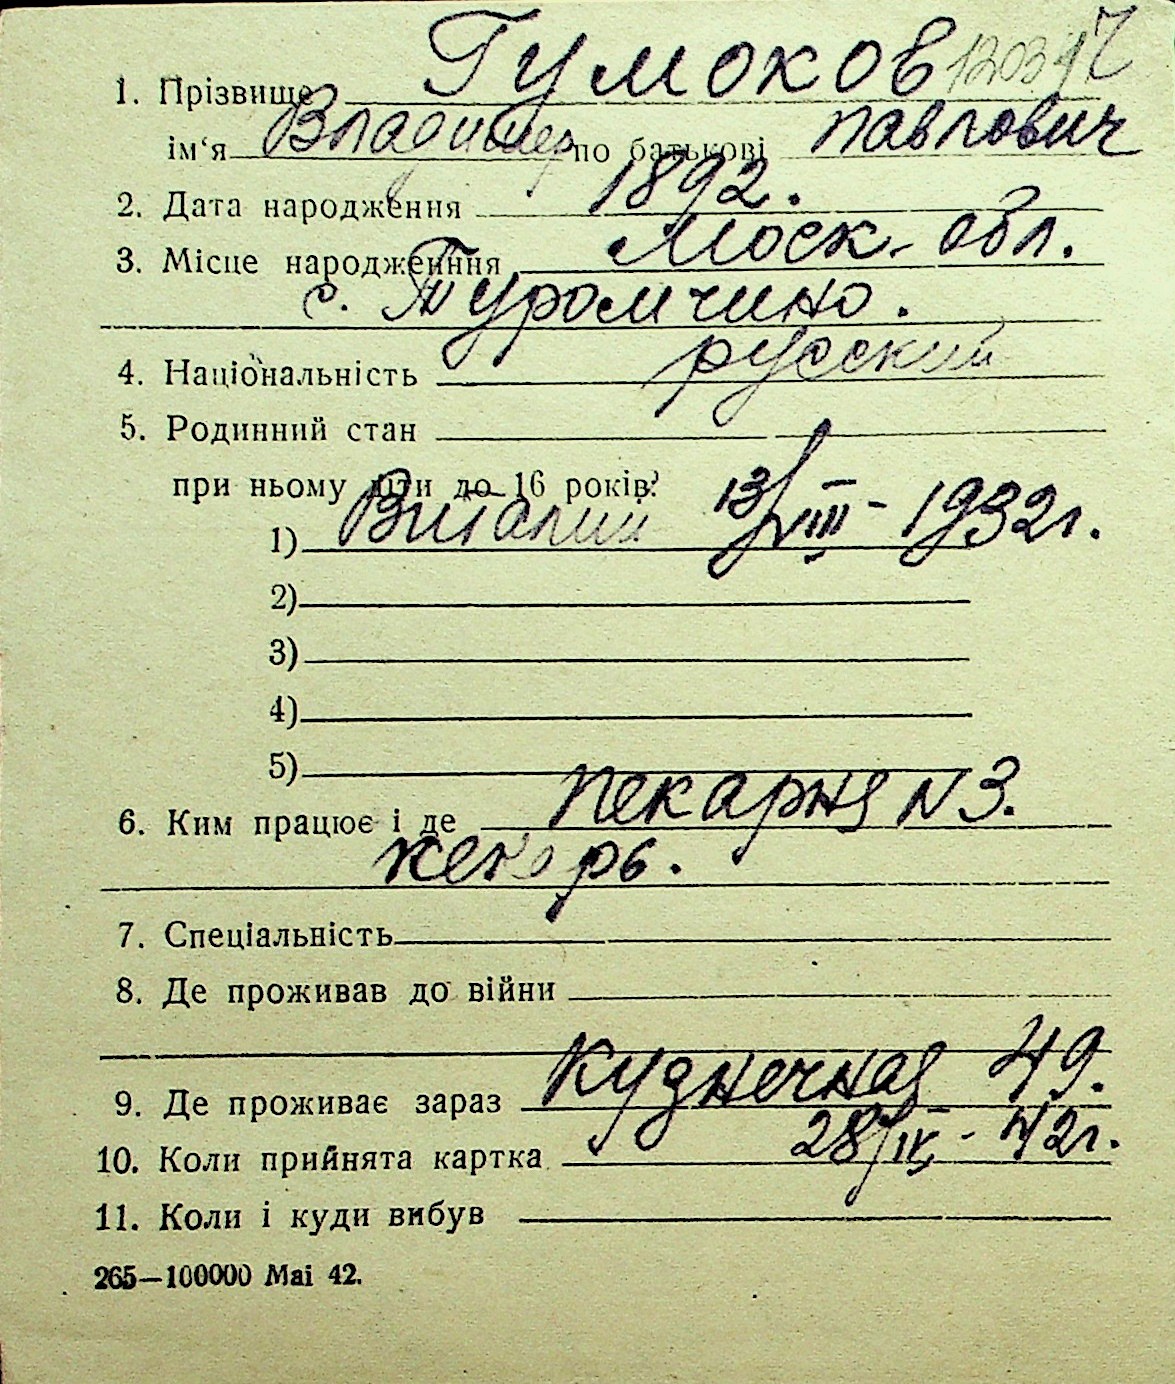 1. Прізвище Гумоков 120317
ім‘я Владимир по батькові павлович
2. Дата народження 1892.
3. Місце народженння Моск. обл.
с. Туромчино.
4. Національність русский
5. Родинний стан
при ньому діти до 16 років?
1) Виталий 13/VIII - 1932г.
2)
3)
4)
5)
6. Ким працює і де пекарня N 3.
пекарь.
7. Спеціальність
8. Де проживав до війни
9. Де проживає зараз Кузнечная 49.
10. Коли прийнята картка 28/IX - 42г.
11. Коли і куди вибув
265—100000 Mai 42.